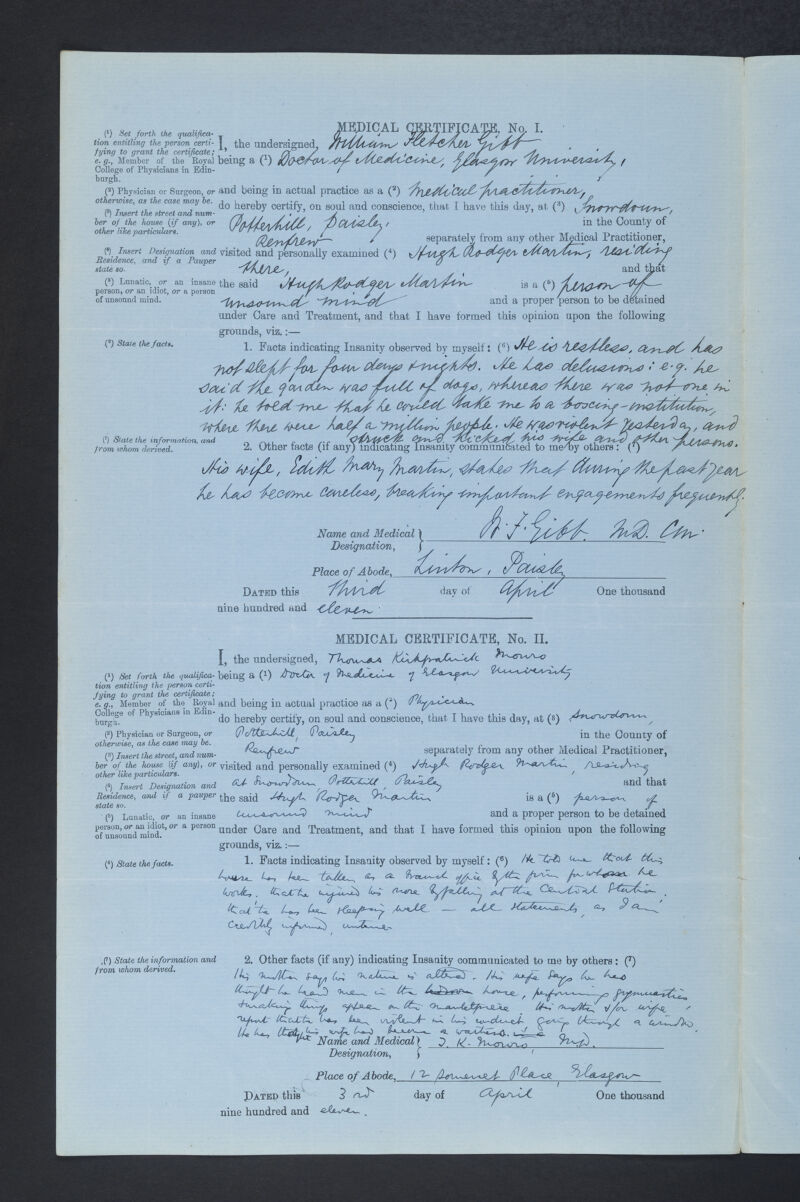 MEDICAL CERTIFICATE, No. I.
(¹) Set forth the qualifica-
tion entitling the person certi-
fying to grant the certificate;
e.g., Member of the Royal
College of Physicians in Edin-
burgh.
(²) Physician or Surgeon, or
otherwise, as the case may be.
(³) Insert the street and num-
ber of the house (if any), or
other like particulars.
(⁴) Insert Designation and
Residence, and if a Pauper
state so.
(⁵) Lunatic, or an insane
person, or an idiot, or a person
of unsound mind.
(⁶) State the facts.
(⁷) State the information, and
from whom derived.
I, the undersigned, William Fletcher Gibb
being a (¹) Doctor of Medicine, Glasgow University,
and being in actual practice as a (²) medical practitioner,
do hereby certify, on soul and conscience, that I have this day, at (³) Snowdoun,
Potterhill, Paisley, in the County of
Renfrew separately from any other Medical Practitioner,
visited and personally examined (⁴) Hugh Rodger Martin, residing
there, and that
the said Hugh Rodger Martin is a (⁵) person of
unsound mind and a proper person to be detained
under Care and Treatment, and that I have formed this opinion upon the following
grounds, viz.:—
1. Facts indicating Insanity observed by myself: (⁶) He is restless, and has
not slept for four days & nights. He has delusions: e.g. he
said the garden was full of dogs, whereas there was not one in
it: he told me that he could take me to a boxing-institution,
where there were half a million people. He was violent yesterday, and
struck and kicked his wife and other persons.
2. Other facts (if any) indicating Insanity communicated to me by others: (⁷)
His wife, Edith Mary Martin, states that during the past year
he has become careless, breaking important engagements frequently.
Name and Medical Designation, W. F. Gibb. M.D. C.M.
Place of Abode, Linton, Paisley
DATED this third day of April One thousand
nine hundred and eleven.
MEDICAL CERTIFICATE, No. II.
(¹) Set forth the qualifica-
tion entitling the person certi-
fying to grant the certificate;
e.g., Member of the Royal
College of Physicians in Edin-
burgh.
(²) Physician or Surgeon, or
otherwise, as the case may be.
(³) Insert the street, and num-
ber of the house (if any), or
other like particulars.
(⁴) Insert Designation and
Residence, and if a pauper
state so.
(⁵) Lunatic, or an insane
person, or an idiot, or a person
of unsound mind.
(⁶) State the facts.
(⁷) State the information and
from whom derived.
I, the undersigned, Thomas Kirkpatrick Monro
being a (¹) Doctor of Medicine of Glasgow University
and being in actual practice as a (²) Physician
do hereby certify, on soul and conscience, that I have this day, at (³) Snowdoun,
Potterhill, Paisley in the County of
Renfrew separately from any other Medical Practitioner,
visited and personally examined (⁴) Hugh Rodger Martin, residing
at Snowdoun, Potterhill, Paisley and that
the said Hugh Rodger Martin is a (⁵) person of
unsound mind and a proper person to be detained
under Care and Treatment, and that I have formed this opinion upon the following
grounds, viz.:—
1. Facts indicating Insanity observed by myself: (⁶) He told me that this
house has been taken as a branch office by the firm for whom he
works; that he injured his nose by falling at the Central Station;
that he has been sleeping well — all statements, as I am
credibly informed, untrue
2. Other facts (if any) indicating Insanity communicated to me by others: (⁷)
His mother says his nature is altered. His wife says he has
thought he heard men in the house, performing gymnastics
& making things appear on the mantelpiece. His mother &/or wife
report that he has been violent in his conduct, going through a window.
He has his wife had become a waitress.
Name and Medical Designation, T. K. Monro, M.D.
Place of Abode, 12 Somerset Place, Glasgow
DATED this 3rd day of April One thousand
nine hundred and eleven.